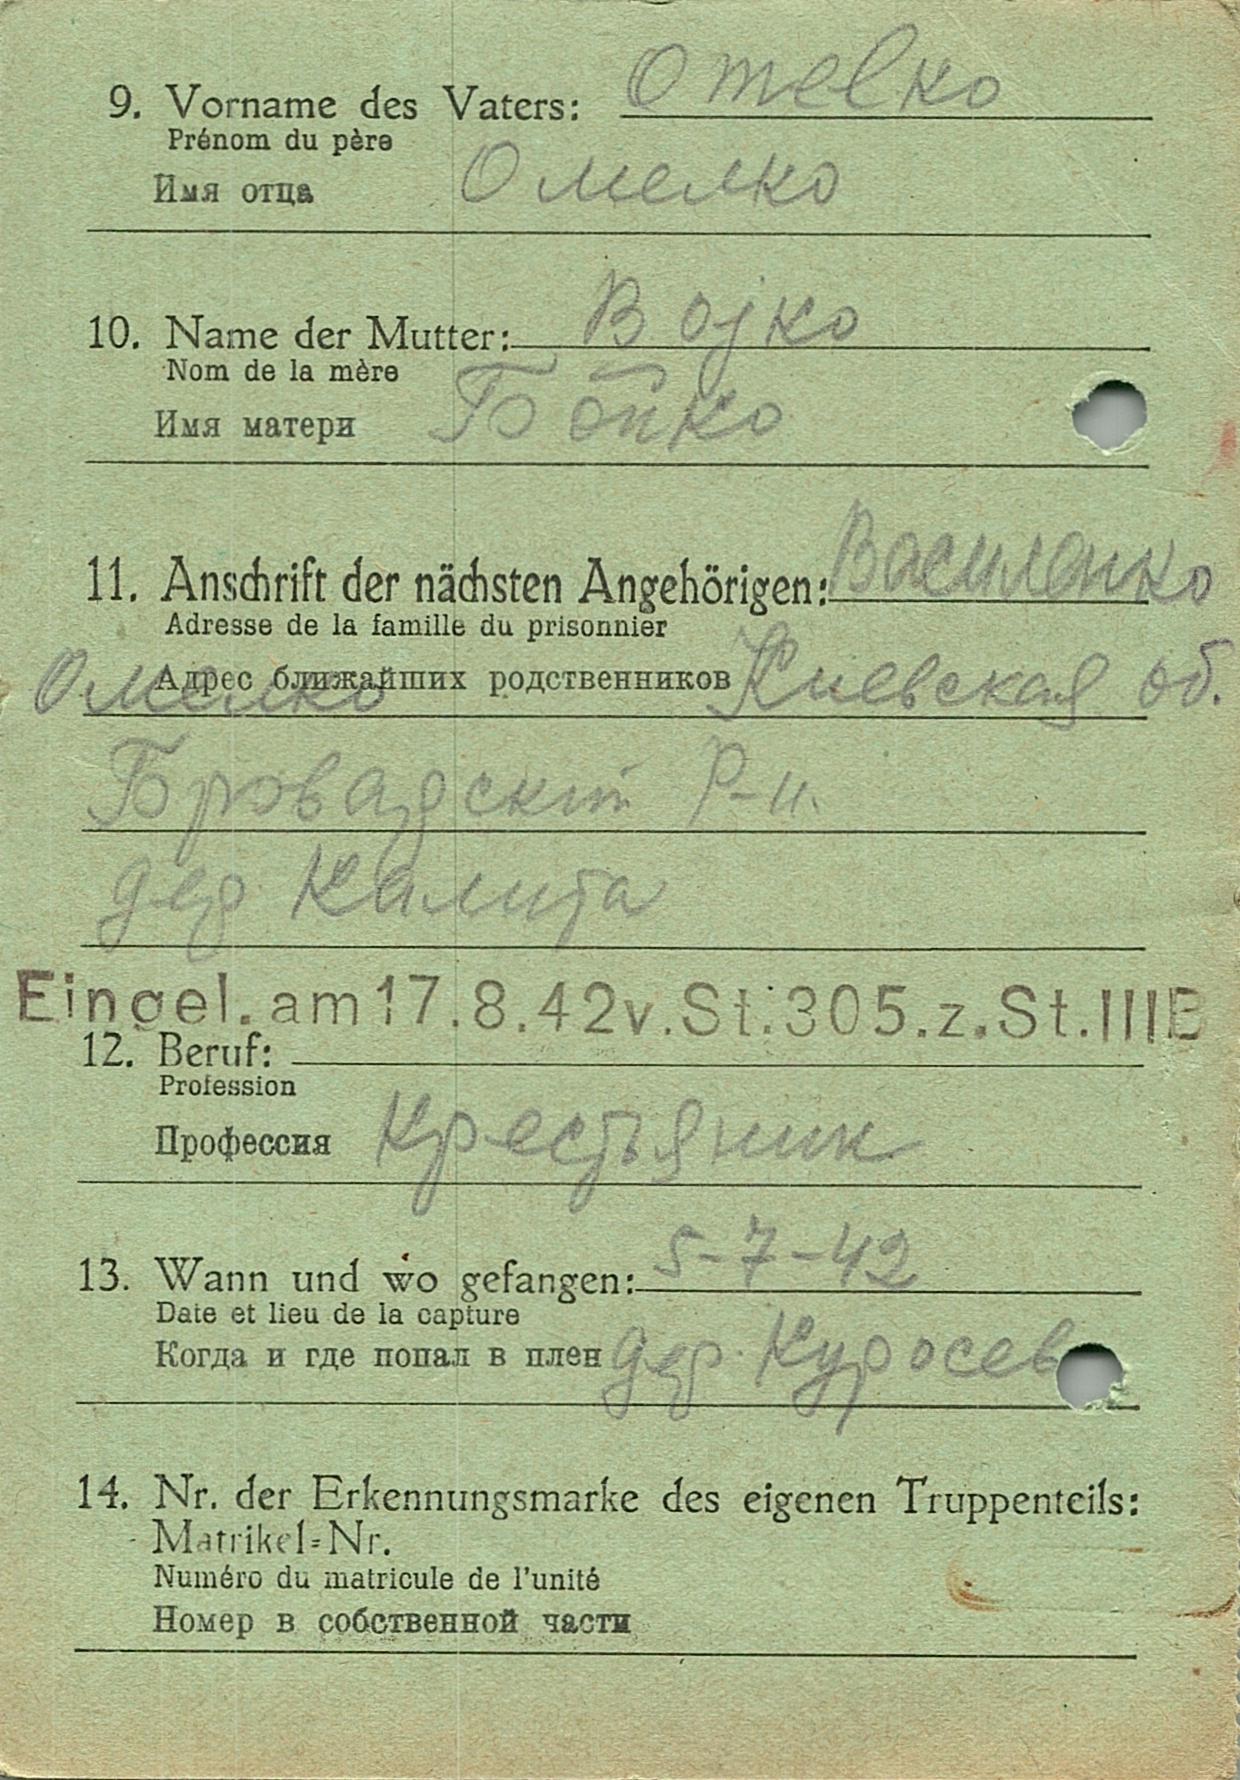 9. Vorname des Vaters: Omelko
Prénom du père
Имя отца Омелко
10. Name der Mutter: Bojko
Nom de la mère
Имя матери Бойко
11. Anschrift der nächsten Angehörigen: Василенко
Adresse de la famille du prisonnier
Адрес ближайших родственников Киевская об.
Омелко
Р-н.
дер Калита
Eingel. am 17.8.42 v. St. 305. z. St. III B
12. Beruf:
Profession
Профессия Крестьяник
13. Wann und wo gefangen: 5-7-42
Date et lieu de la capture
Когда и где попал в плен дер.
14. Nr. der Erkennungsmarke des eigenen Truppenteils:
Matrikel=Nr.
Numéro du matricule de l'unité
Номер в собственной части